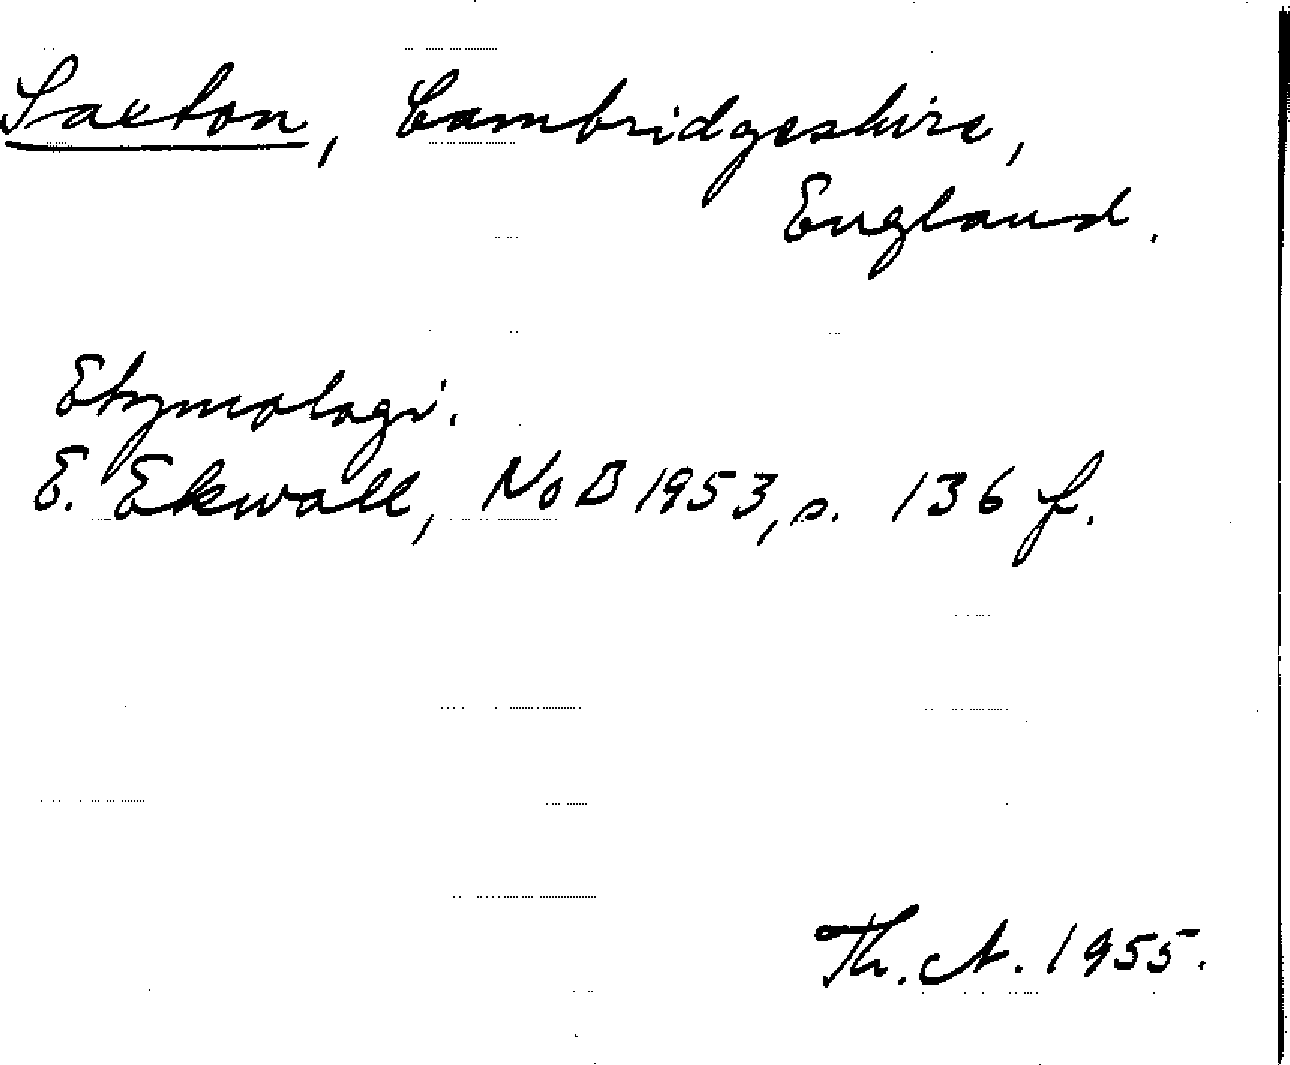 Saxton, Cambridgeshire,
England.
Etymologi.
E. Ekwall, NoB 1953, s. 136 f.
Th. A. 1955.